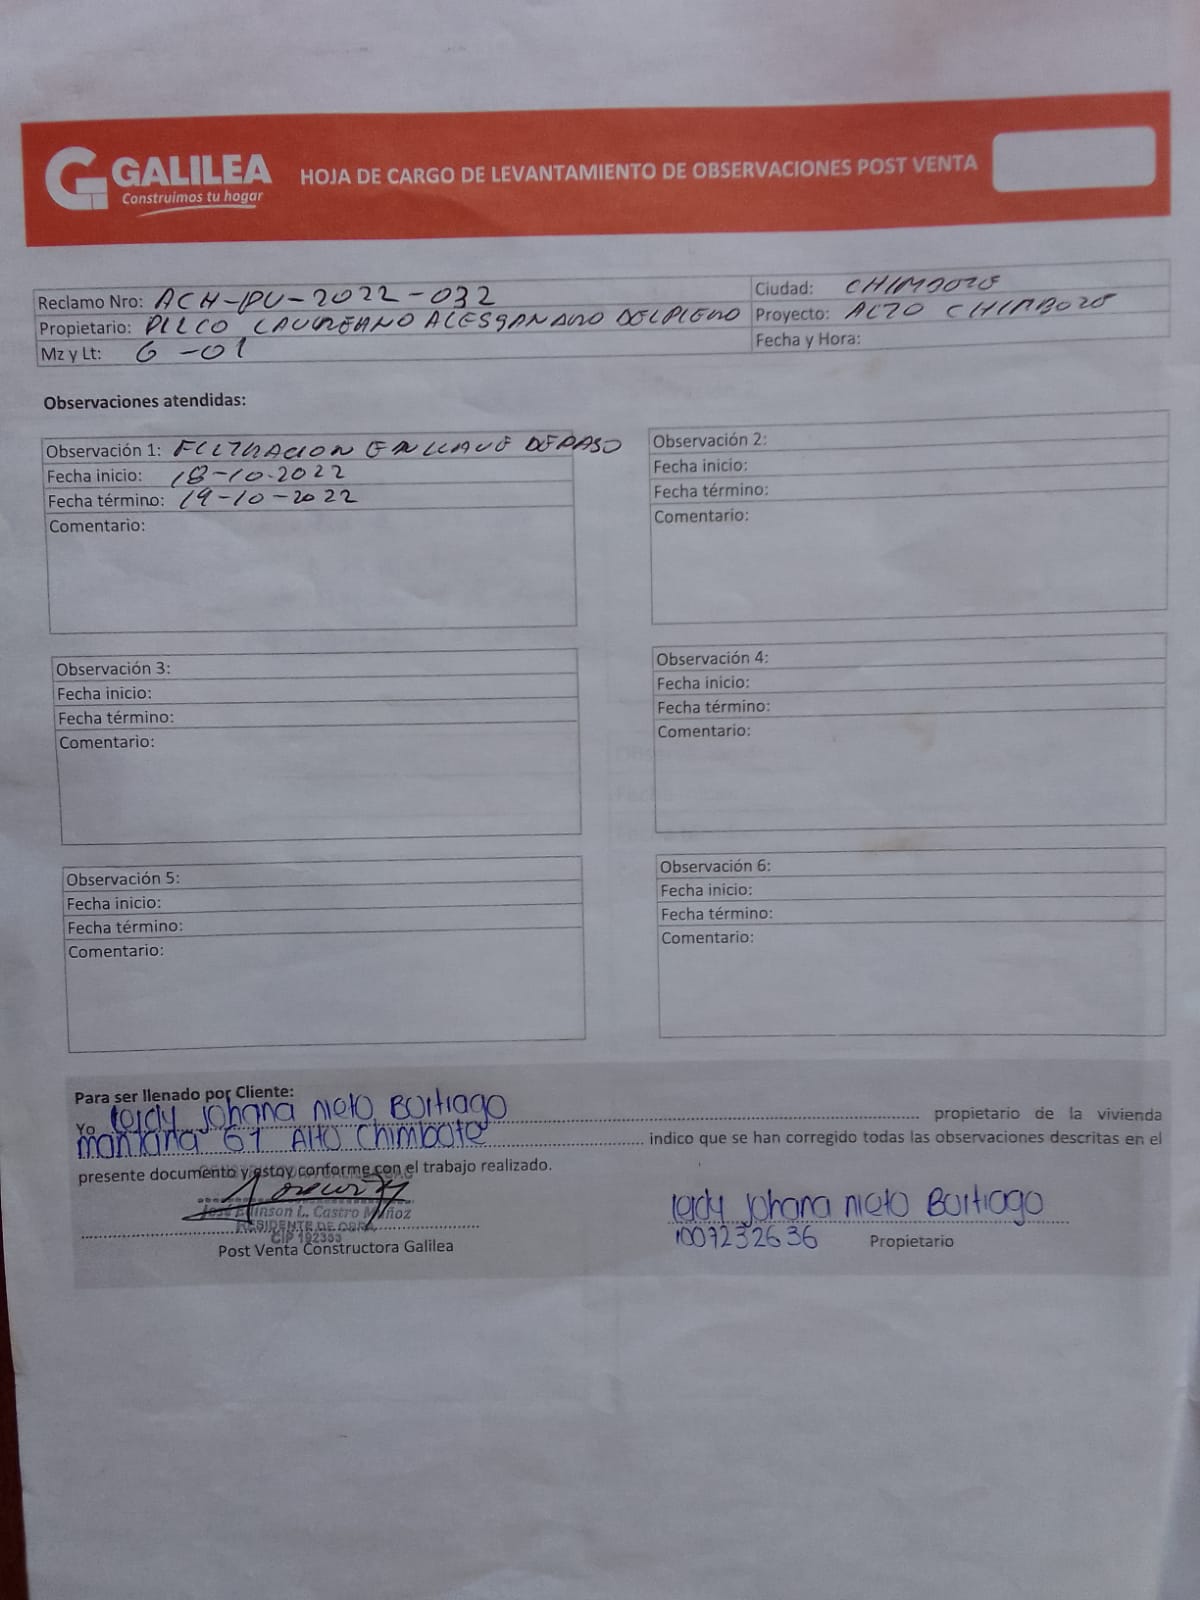 GALILEA
Construimos tu hogar
HOJA DE CARGO DE LEVANTAMIENTO DE OBSERVACIONES POST VENTA
Reclamo Nro: ACH-PV-2022-032
Ciudad: CHIMBOTE
Propietario: PILCO LAUREANO ALESSANDRO DELPIERO
Proyecto: ALTO CHIMBOTE
Mz y Lt: G-01
Fecha y Hora:
Observaciones atendidas:
Observación 1: FILTRACION EN LLAVE DE PASO
Fecha inicio: 18-10-2022
Fecha término: 19-10-2022
Comentario:
Observación 2:
Fecha inicio:
Fecha término:
Comentario:
Observación 3:
Fecha inicio:
Fecha término:
Comentario:
Observación 4:
Fecha inicio:
Fecha término:
Comentario:
Observación 5:
Fecha inicio:
Fecha término:
Comentario:
Observación 6:
Fecha inicio:
Fecha término:
Comentario:
Para ser llenado por Cliente:
Yo leidy Johana Nieto Buitiago propietario de la vivienda
manzana G1 Alto Chimbote indico que se han corregido todas las observaciones descritas en el
presente documento y estoy conforme con el trabajo realizado.
L. Castro Muñoz
RESIDENTE DE OBRA
CIP 192353
Post Venta Constructora Galilea
leidy Johana Nieto Buitiago
1007232636 Propietario